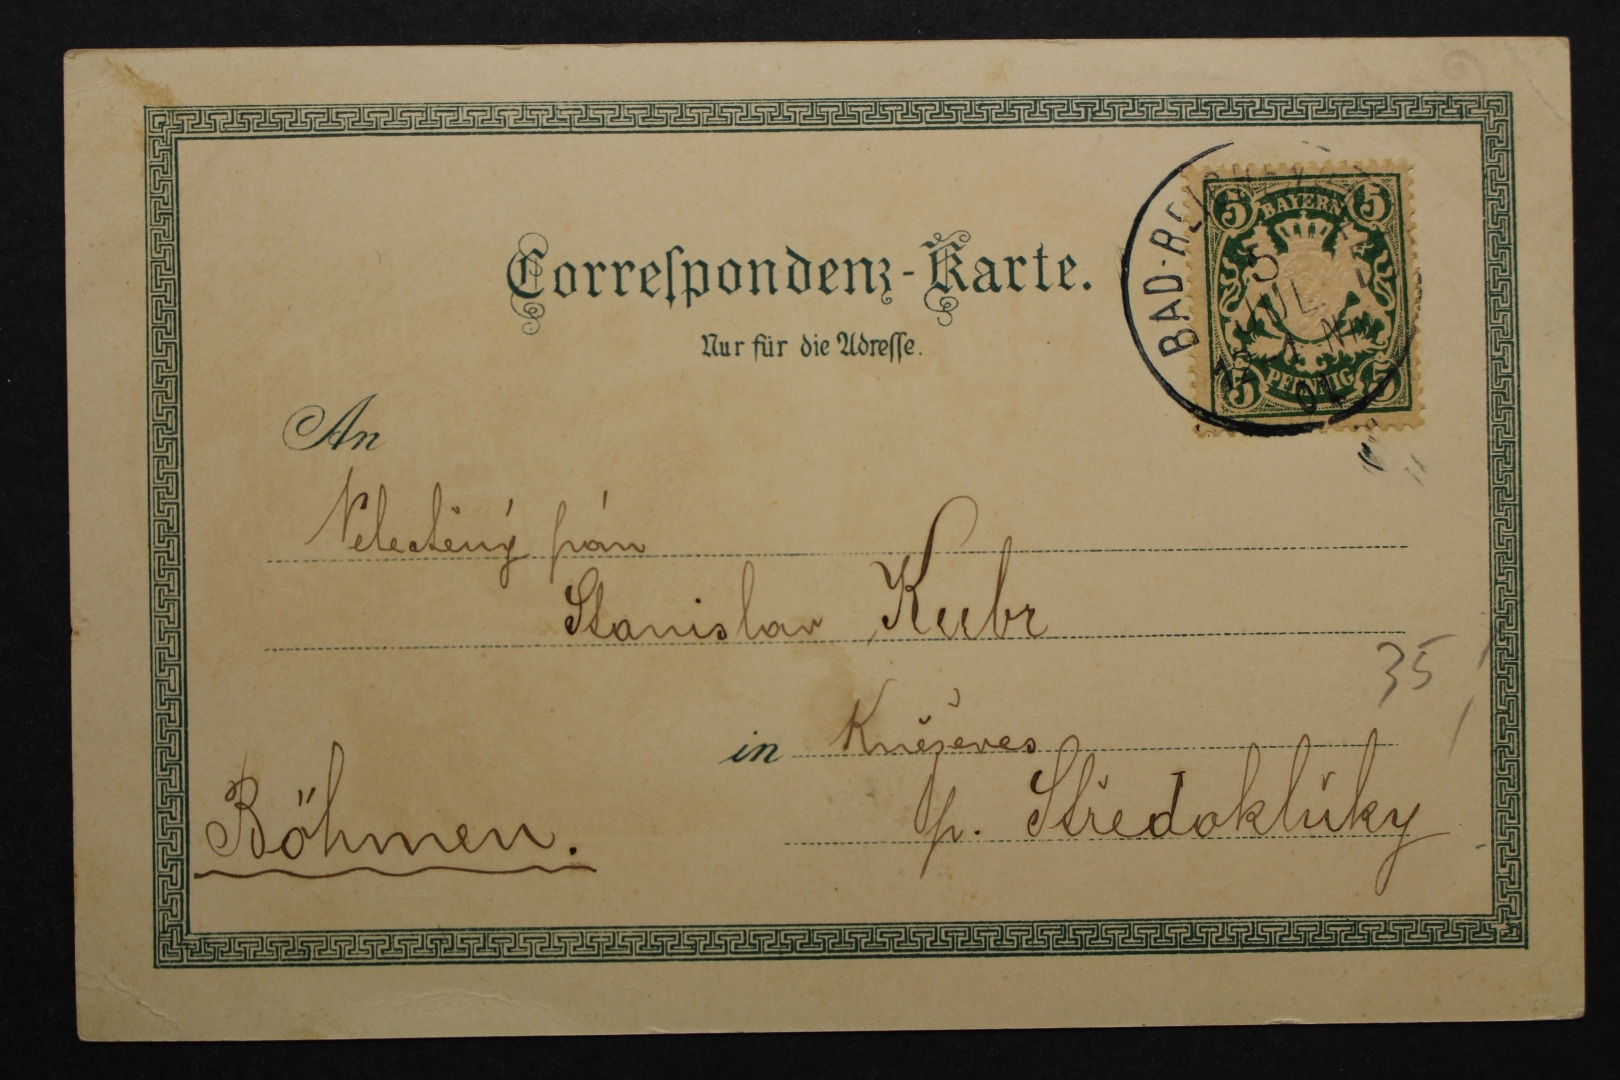 Correspondenz-Karte.
Nur für die Adresse.
BAD-REICHENHALL
5 JUL
12 4 NM
01
5 BAYERN 5
5 PFENNIG 5
An
Velectěný pán
Stanislav Kubr
35
in Kněževes
Böhmen.
p. Středokluky